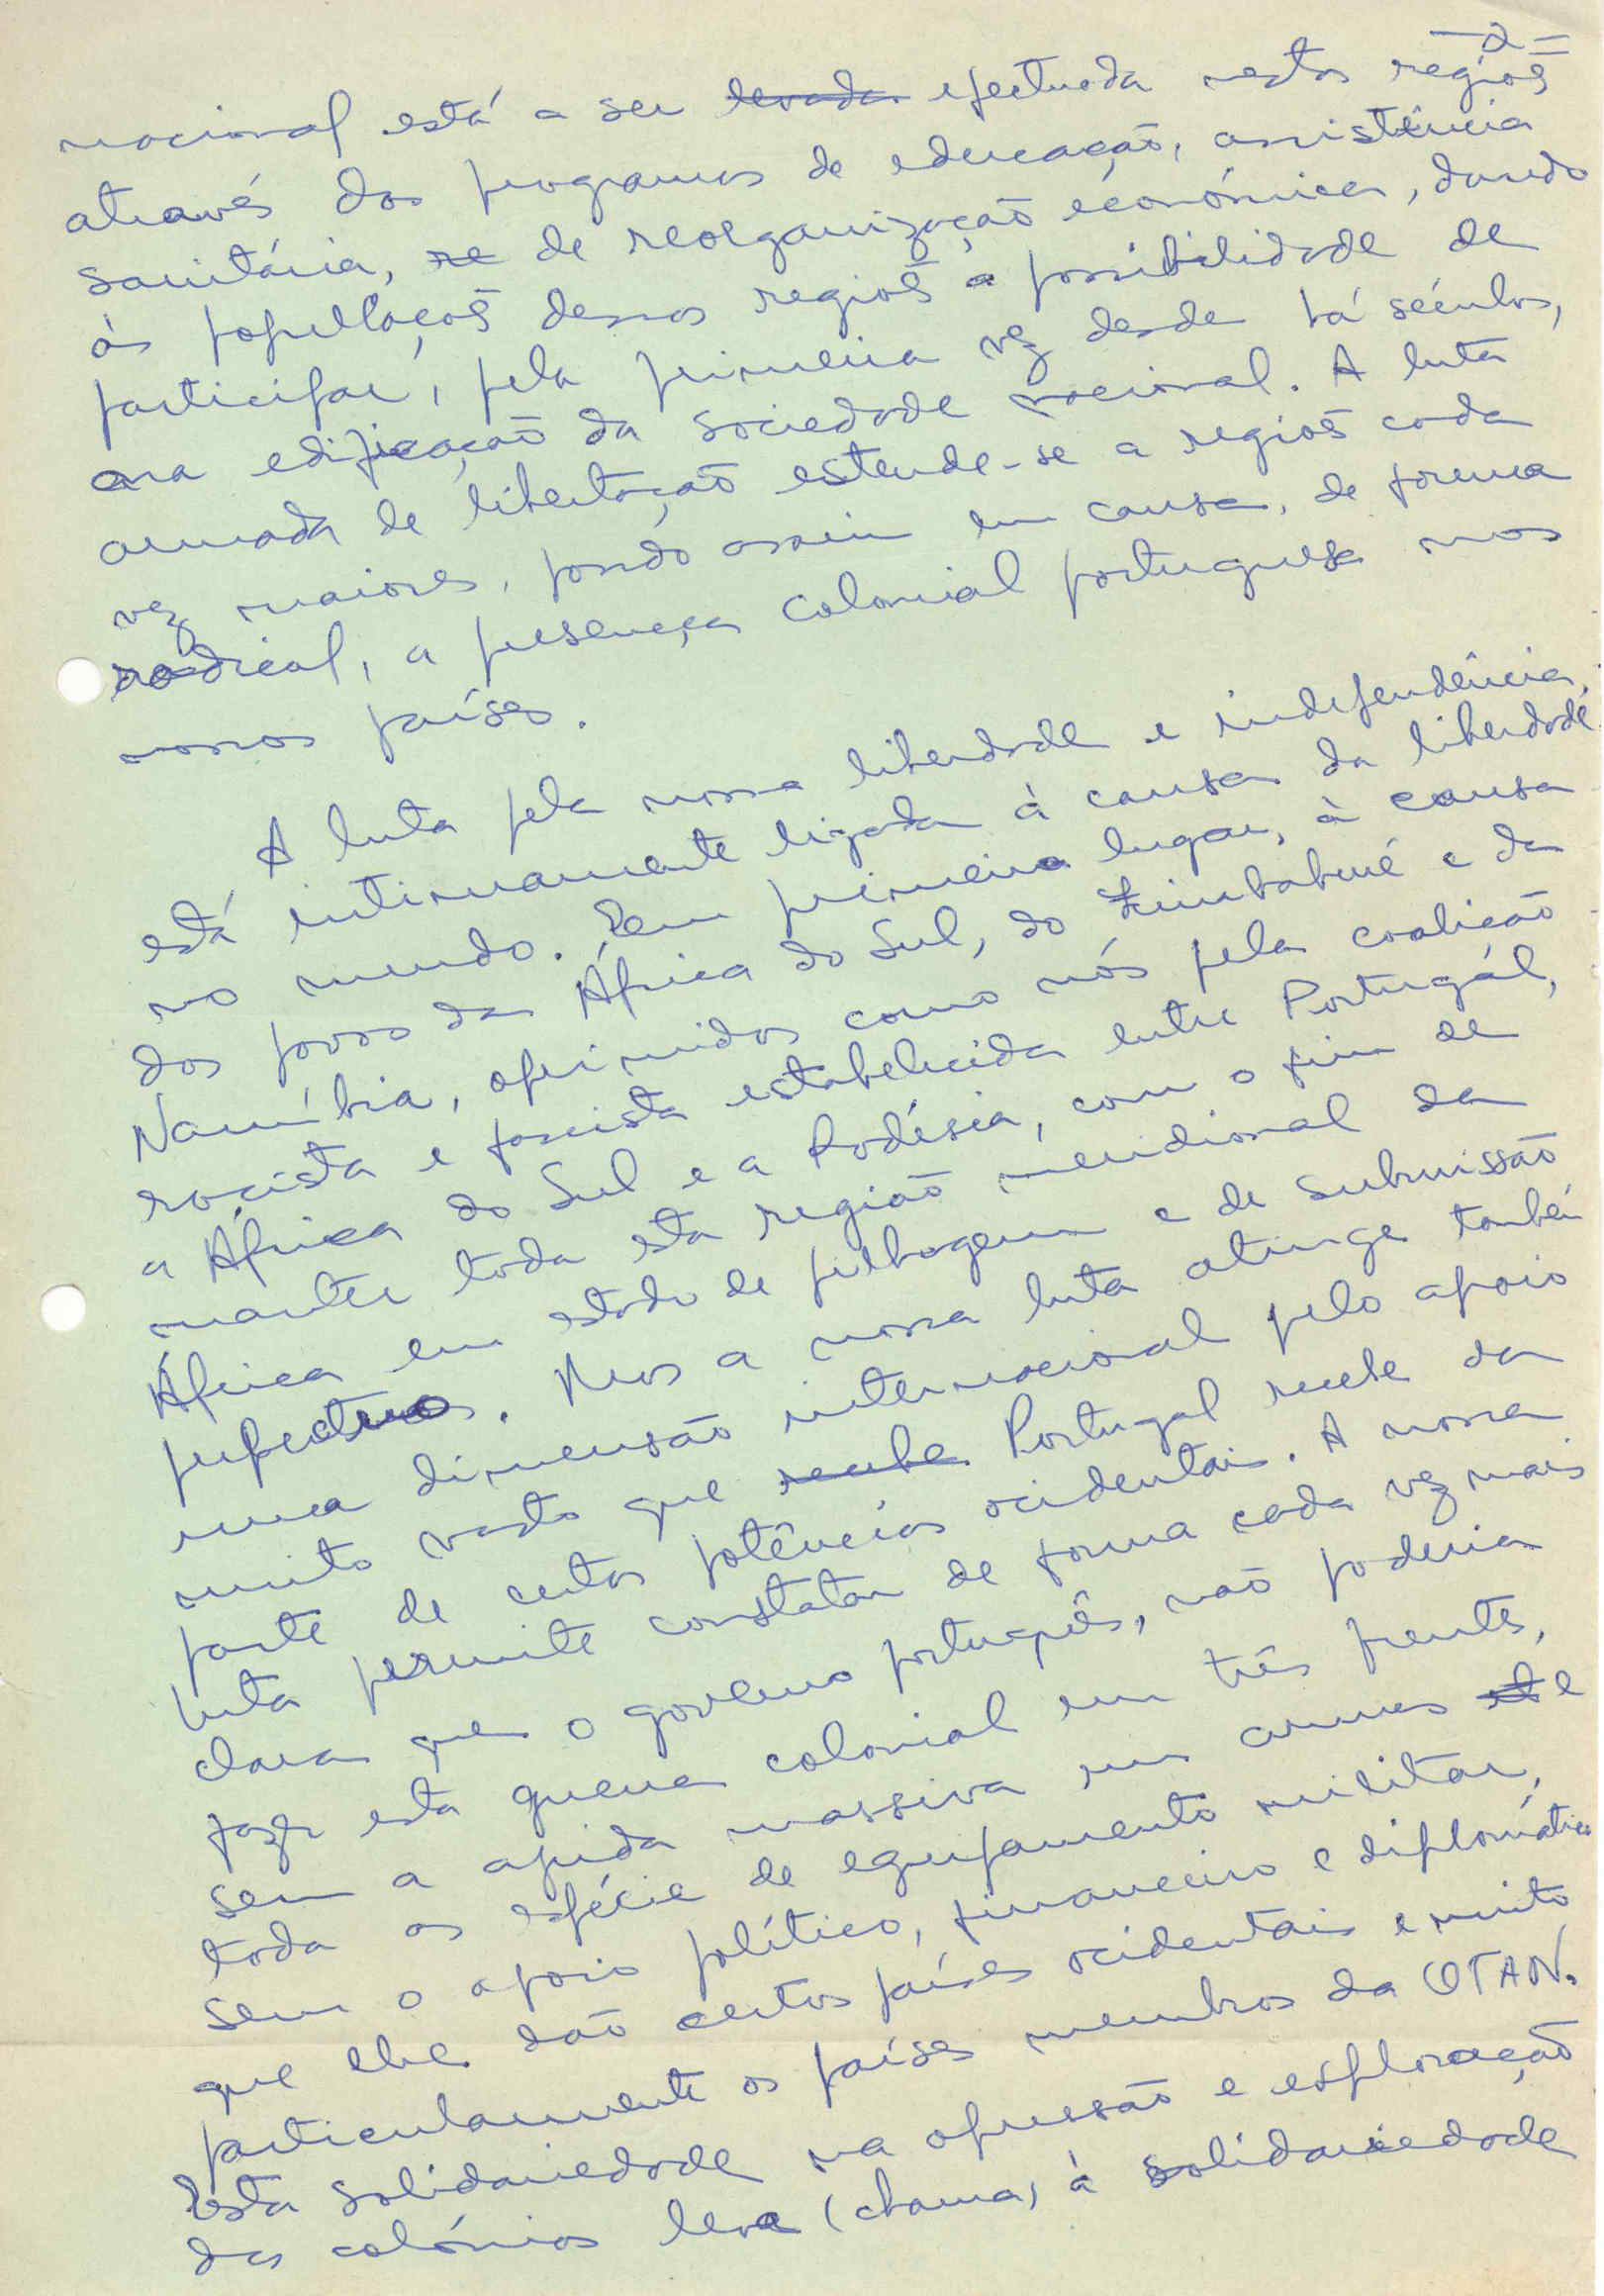 —2—
nacional está a ser levada efectuada nestas regiões
através dos programas de educação, assistência
sanitária, re de reorganização económica, dando
às populações dessas regiões a possibilidade de
participar, pela primeira vez desde há séculos,
na edificação da sociedade nacional. A luta
armada de libertação estende-se a regiões cada
vez maiores, pondo assim em causa, de forma
radical, a presença colonial portuguesa nos
nossos países.
A luta pela nossa liberdade e independência,
está intimamente ligada à causa da liberdade
no mundo. Em primeiro lugar, à causa
dos povos da África do Sul, do Zimbabwé e da
Namíbia, oprimidos como nós pela coalição
racista e fascista estabelecida entre Portugal,
a África do Sul e a Rodésia, com o fim de
manter toda esta região meridional da
África em estado de pilhagem e de submissão
perpétuas. Mas a nossa luta atinge também
uma dimensão internacional pelo apoio
muito vasto que recebe Portugal recebe da
parte de certas potências ocidentais. A nossa
luta permite constatar de forma cada vez mais
clara que o governo português, não poderia
fazer esta guerra colonial em três frentes,
sem a ajuda massiva em armas e
toda as espécie de equipamento militar,
sem o apoio político, financeiro e diplomático
que lhe dão certos países ocidentais e muito
particularmente os países membros da OTAN.
Esta solidariedade na opressão e exploração
das colónias leva (chama) à solidariedade